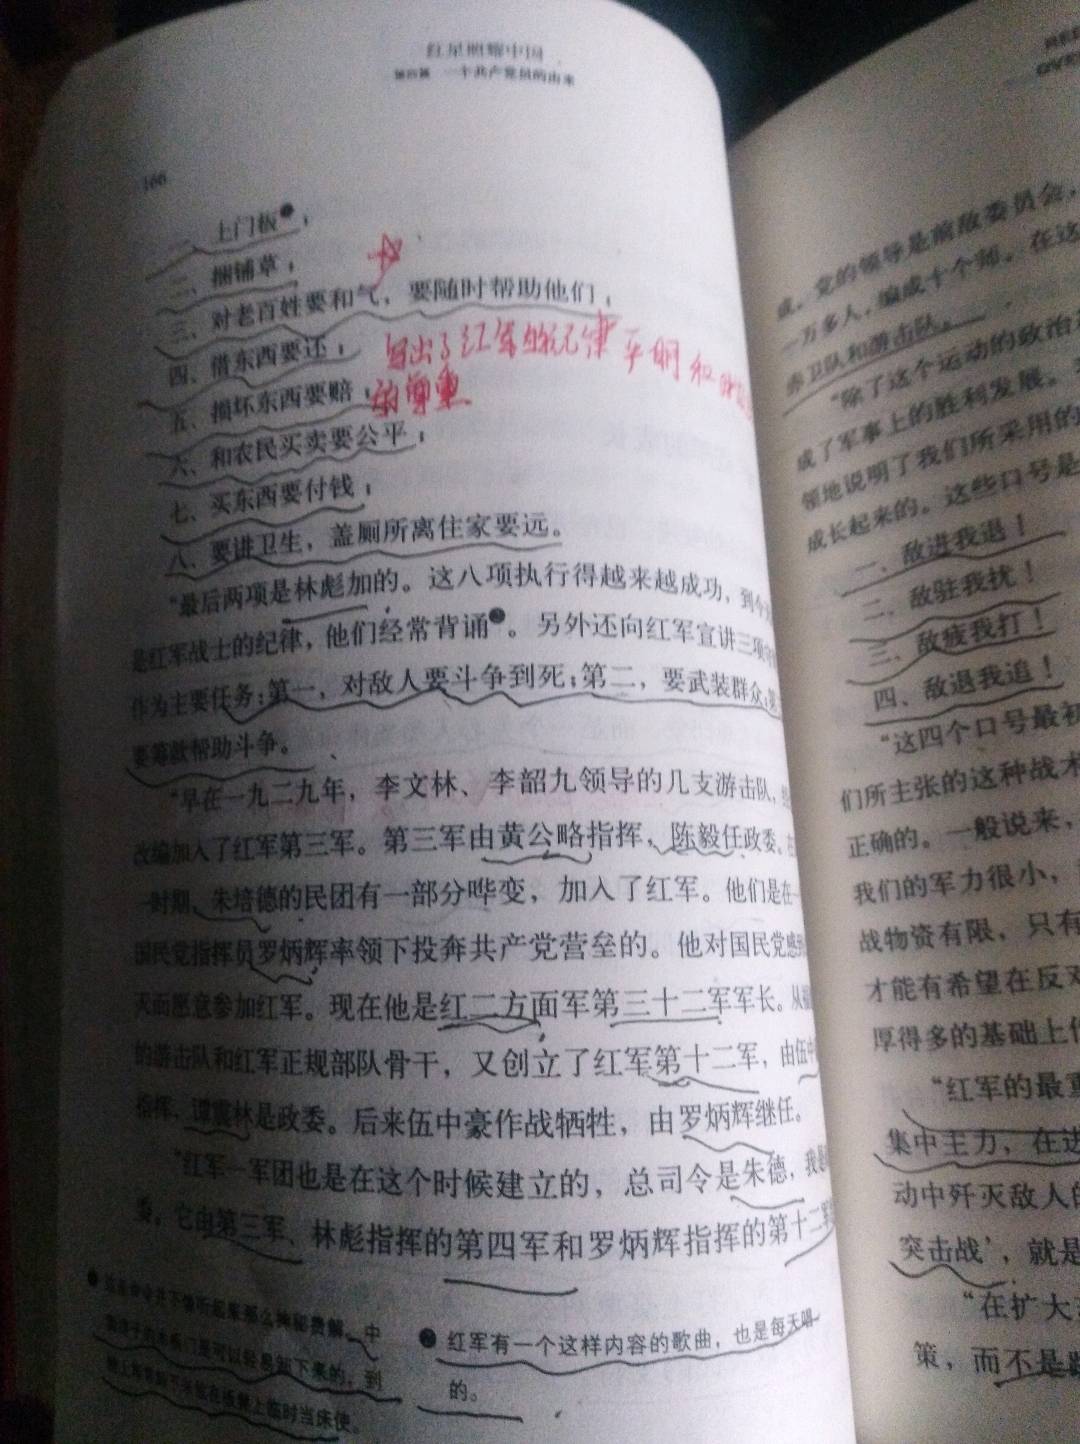 红星照耀中国
第四篇 一个共产党员的由来
166
一、上门板❶；
二、捆铺草；
三、对老百姓要和气，要随时帮助他们；
四、借东西要还；
写出了红军的纪律严明和
五、损坏东西要赔；
的尊重
六、和农民买卖要公平；
七、买东西要付钱；
八、要讲卫生，盖厕所离住家要远。
“最后两项是林彪加的。这八项执行得越来越成功，到今
是红军战士的纪律，他们经常背诵❷。另外还向红军宣讲三项
作为主要任务：第一，对敌人要斗争到死；第二，要武装群众；
要筹款帮助斗争。
“早在一九二九年，李文林、李韶九领导的几支游击队，
改编加入了红军第三军。第三军由黄公略指挥，陈毅任政委。
一时期，朱培德的民团有一部分哗变，加入了红军。他们是在一
国民党指挥员罗炳辉率领下投奔共产党营垒的。他对国民党感到
灭而愿意参加红军。现在他是红二方面军第三十二军军长。从
的游击队和红军正规部队骨干，又创立了红军第十二军，由伍中
指挥、谭震林是政委。后来伍中豪作战牺牲，由罗炳辉继任。
“红军一军团也是在这个时候建立的，总司令是朱德，我是
委。它由第三军、林彪指挥的第四军和罗炳辉指挥的第十二军
❶ 这条命令并不像听起来那么神秘费解。中
国房子的木板门是可以轻易卸下来的，到
晚上常常卸下来放在板凳上临时当床使。
❷ 红军有一个这样内容的歌曲，也是每天唱
的。
RED
OVE
成。党的领导是前敌委员会，
一万多人，编成十个师。在这
赤卫队和游击队。
“除了这个运动的政治
成了军事上的胜利发展。
领地说明了我们所采用的
成长起来的。这些口号是
一、敌进我退！
二、敌驻我扰！
三、敌疲我打！
四、敌退我追！
“这四个口号最初
们所主张的这种战术
正确的。一般说来，
我们的军力很小，
战物资有限，只有
才能有希望在反对
厚得多的基础上作
“红军的最重
集中主力，在进
动中歼灭敌人的
突击战’，就是
“在扩大
策，而不是